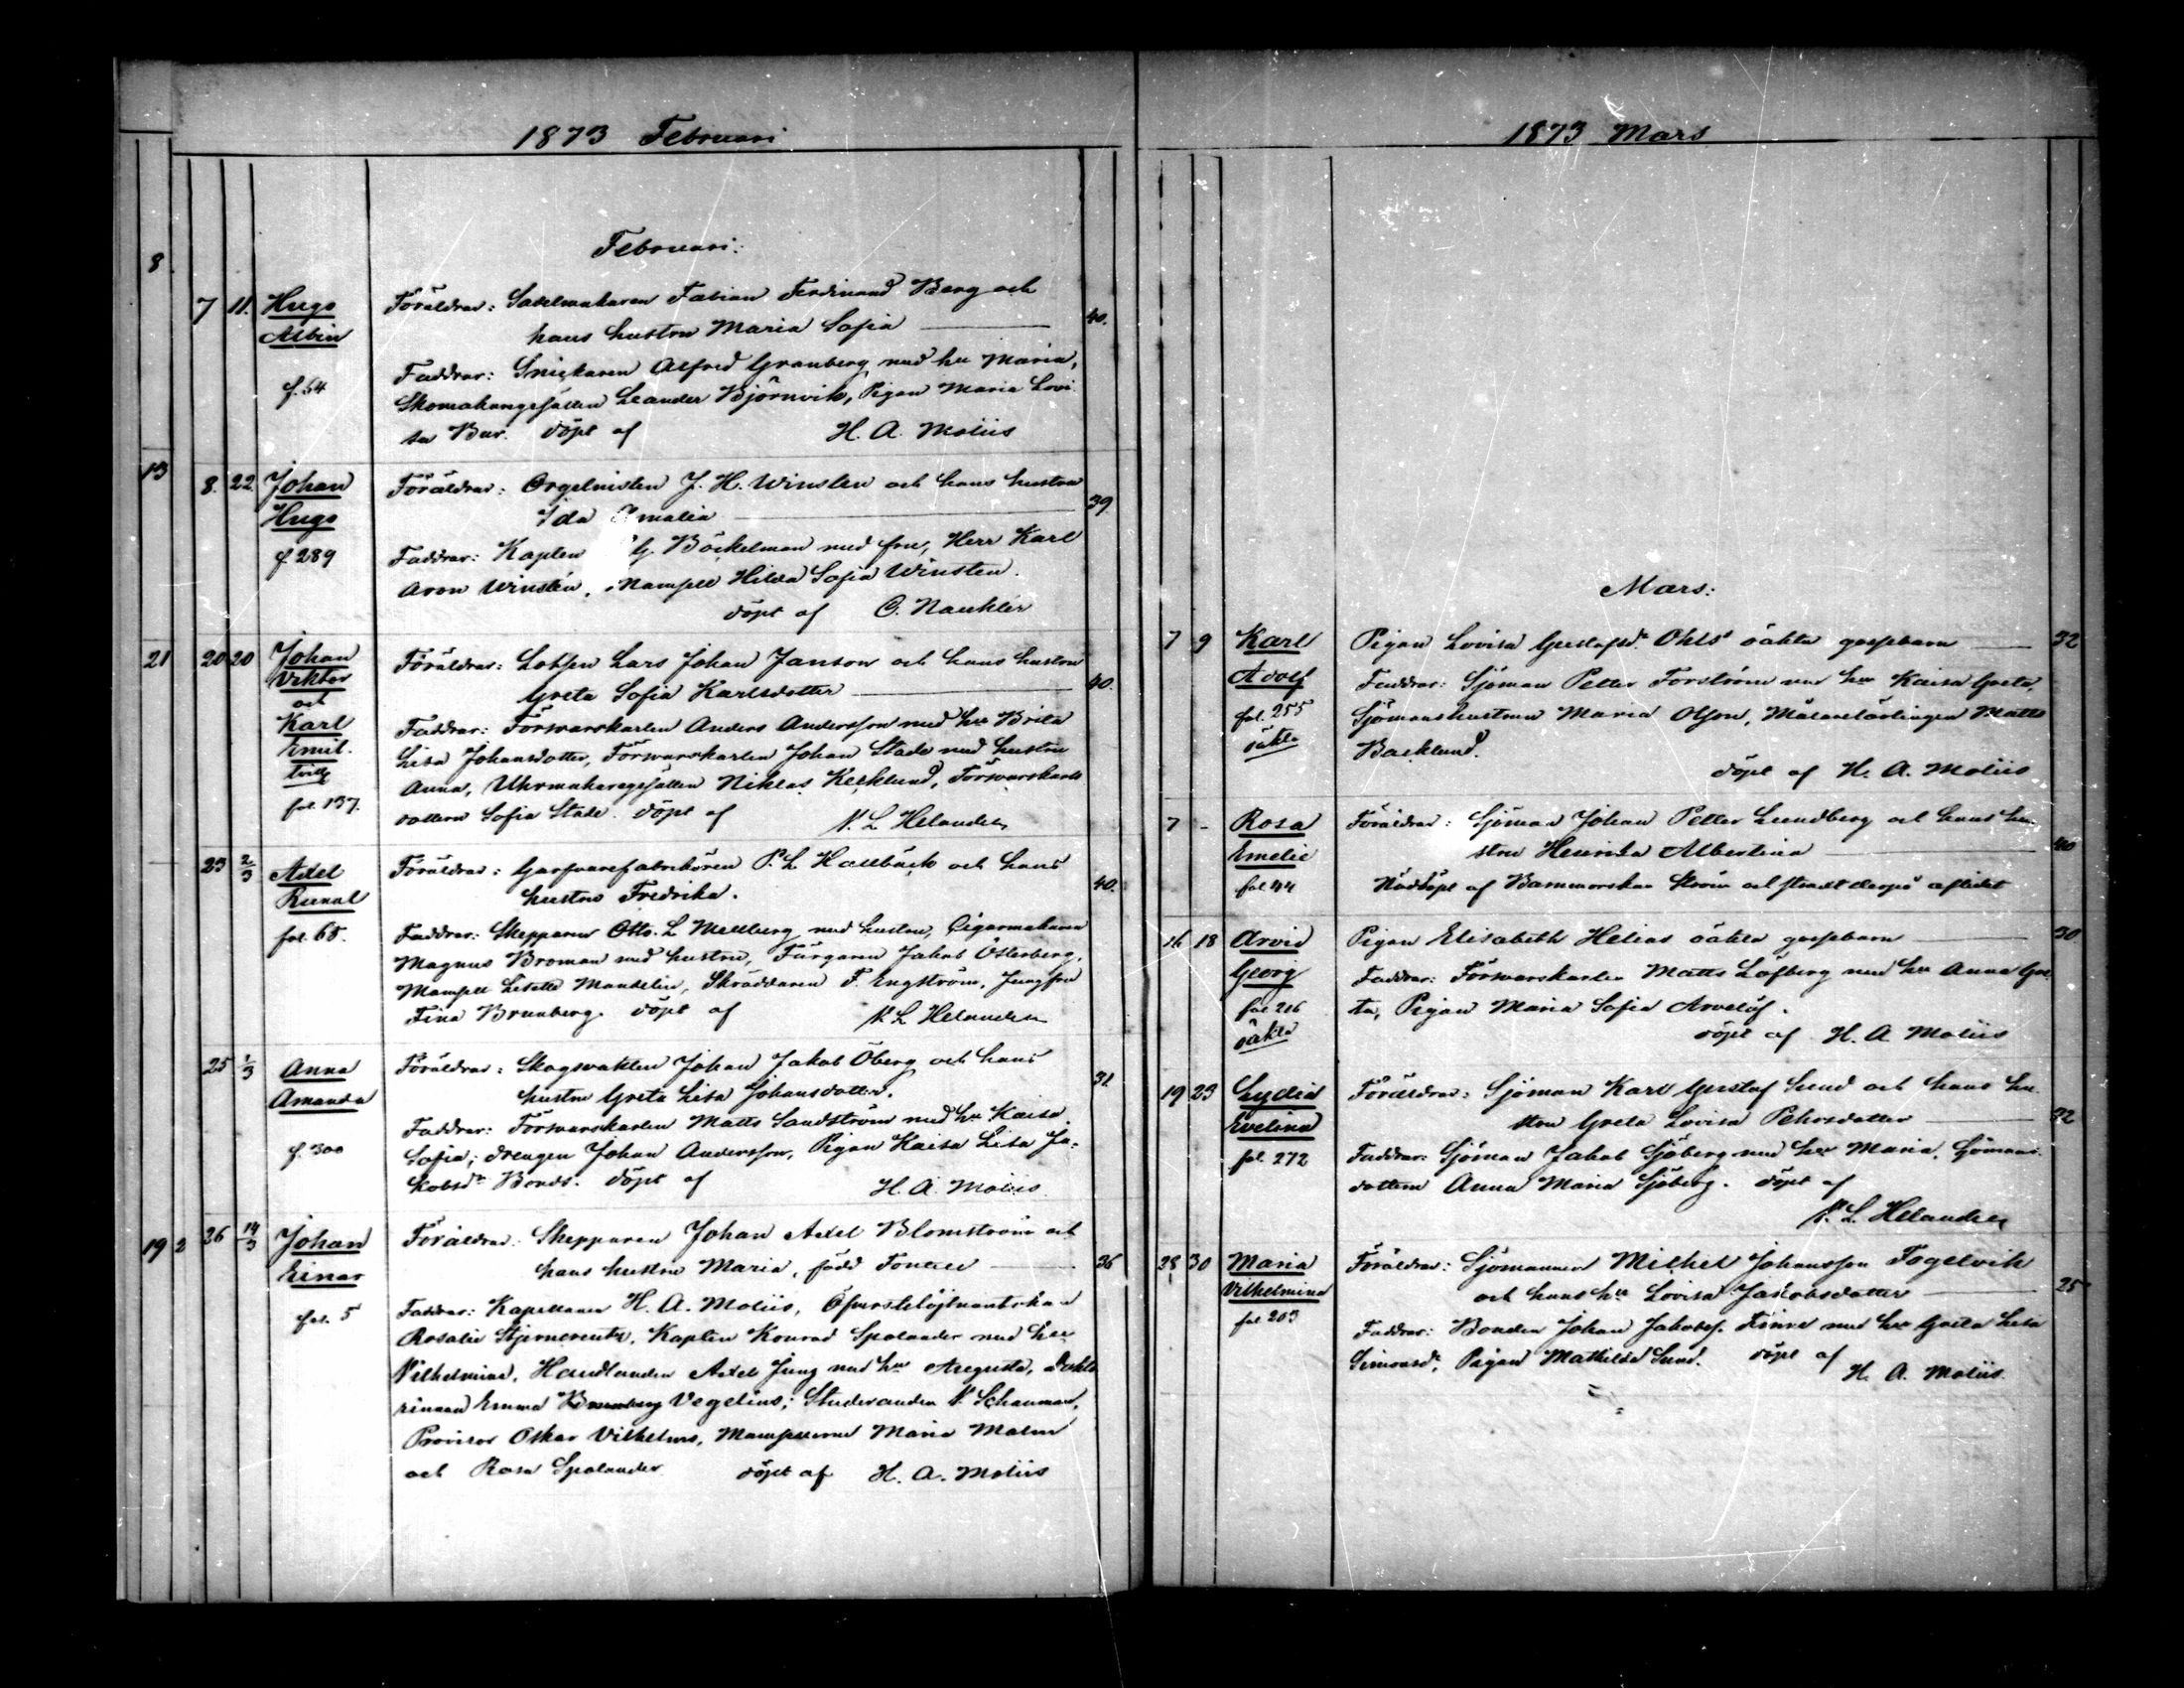 1873 Februari
Februari:
8
7 11. Hugo Föräldrar: Sadelmakaren Fabian Ferdinand Berg och
Albin hans hustru Maria Sofia 40.
f. 54 Faddrar: Snickaren Alfred Granberg med hu Maria,
Skomakaregesällen Leander Björnvik, Pigan Maria Lovi
sa Bur. döpt af H. A. Moliis
13 8. 22 Johan Föräldrar: Orgelnisten J. H. Winstén och hans hustru
Hugo Ida Amalia 39
f 289 Faddrar: Kapten G. Böckelman med fru, Herr Karl
Aron Winstén, Mamsell Hilda Sofia Winsten.
döpt af C. Nauklér
21 20 20 Johan Föräldrar: Lotsen Lars Johan Janson och hans hustru
Viktor Greta Sofia Karlsdotter 40.
och
Karl Faddrar: Försvarskarlen Anders Andersson med hu Brita
Emil. Lisa Johansdotter, Försvarskarlen Johan Stade med hustru
tvill Anna, Uhrmakaregesällen Niklas Kecklund, Försvarskarls
fol. 137. dottern Sofia Stade. döpt af N. L Helander
23 2/3 Axel Föräldrar: Garfvarefabrikören P. L Hallbäck och hans
Runal hustru Fredrika. 40.
fol. 68. Faddrar: Skepparen Otto. L Mellberg med hustru, Cigarrmakaren
Magnus Broman med hustru, Färgaren Jakob Österberg,
Mamsell Lisette Mandelin, Skräddaren F. Engström, Jungfru
Fina Brunberg. döpt af N L Helander
25 1/3 Anna Föräldrar: Skogsvakten Johan Jakob Öberg och hans
Amanda hustru Greta Lisa Johansdotter. 31
Faddrar: Försvarskarlen Matts Sandström med hu Kaisa
f. 300 Sofia; drengen Johan Andersson, Pigan Kaisa Lisa Ja-
kobsdr Bonds. döpt af H. A. Moliis
19 2 26 14/3 Johan Föräldrar: Skepparen Johan Axel Blomström och
Einar hans hustru Maria, född 36
fol. 5 Faddrar: Kapellanen H. A. Moliis, Öfverstelöjtnantskan
Rosalie Stjerncreutz, Kapten Konrad Spolander med hu
Vilhelmina, Handlanden Axel Jung med hu Augusta, Dokto
rinnan Emma Vegelius; Studeranden V. Schauman,
Provisor Oskar Vilhelms, Mamsellerna Maria Malm
och Rosa Spolander döpt af H. A. Moliis
1873 Mars
Mars:
7 9 Karl Pigan Lovisa Gustafsdr Ohls' oäkta gossebarn 32
Adolf Faddrar: Sjöman Petter Forström med hu Kaisa Greta,
fol. 255 Sjömanshustrun Maria Olson, Målarelärlingen Matts
oäkta Backlund.
döpt af H. A. Moliis
7 - Rosa Föräldrar: Sjöman Johan Petter Lundberg och hans hu-
Emelie stru Henrika Albertina 40
fol 44 Nöddöpt af Barnmorskan Ström och straxt derpå aflidet
16 18 Arvid Pigan Elisabeth Helias oäkta gossebarn 30
Georg Faddrar: Försvarskarlen Matts Löfberg med hu Anna Gre-
fol 216 ta, Pigan Maria Sofia Arvelöf.
oäkta döpt af H. A Moliis
19 23 Lydia Föräldrar: Sjöman Karl Gustaf Sund och hans hu
Evelina stru Greta Lovisa Pehrsdotter 32
fol. 272 Faddrar: Sjöman Jakob Sjöberg med hu Maria, Sjömans
dottern Anna Maria Sjöberg. döpt af
N. L. Helander
28 30 Maria Föräldrar: Sjömannen Mickel Johansson Fogelvik
Vilhelmina och hans hu Lovisa Jakobsdotter 25
fol 203 Faddrar: Bonden Johan Jakobss. Finne med hu Greta Lisa
Simonsdr, Pigan Mathilda Sund. döpt af
H. A. Moliis.